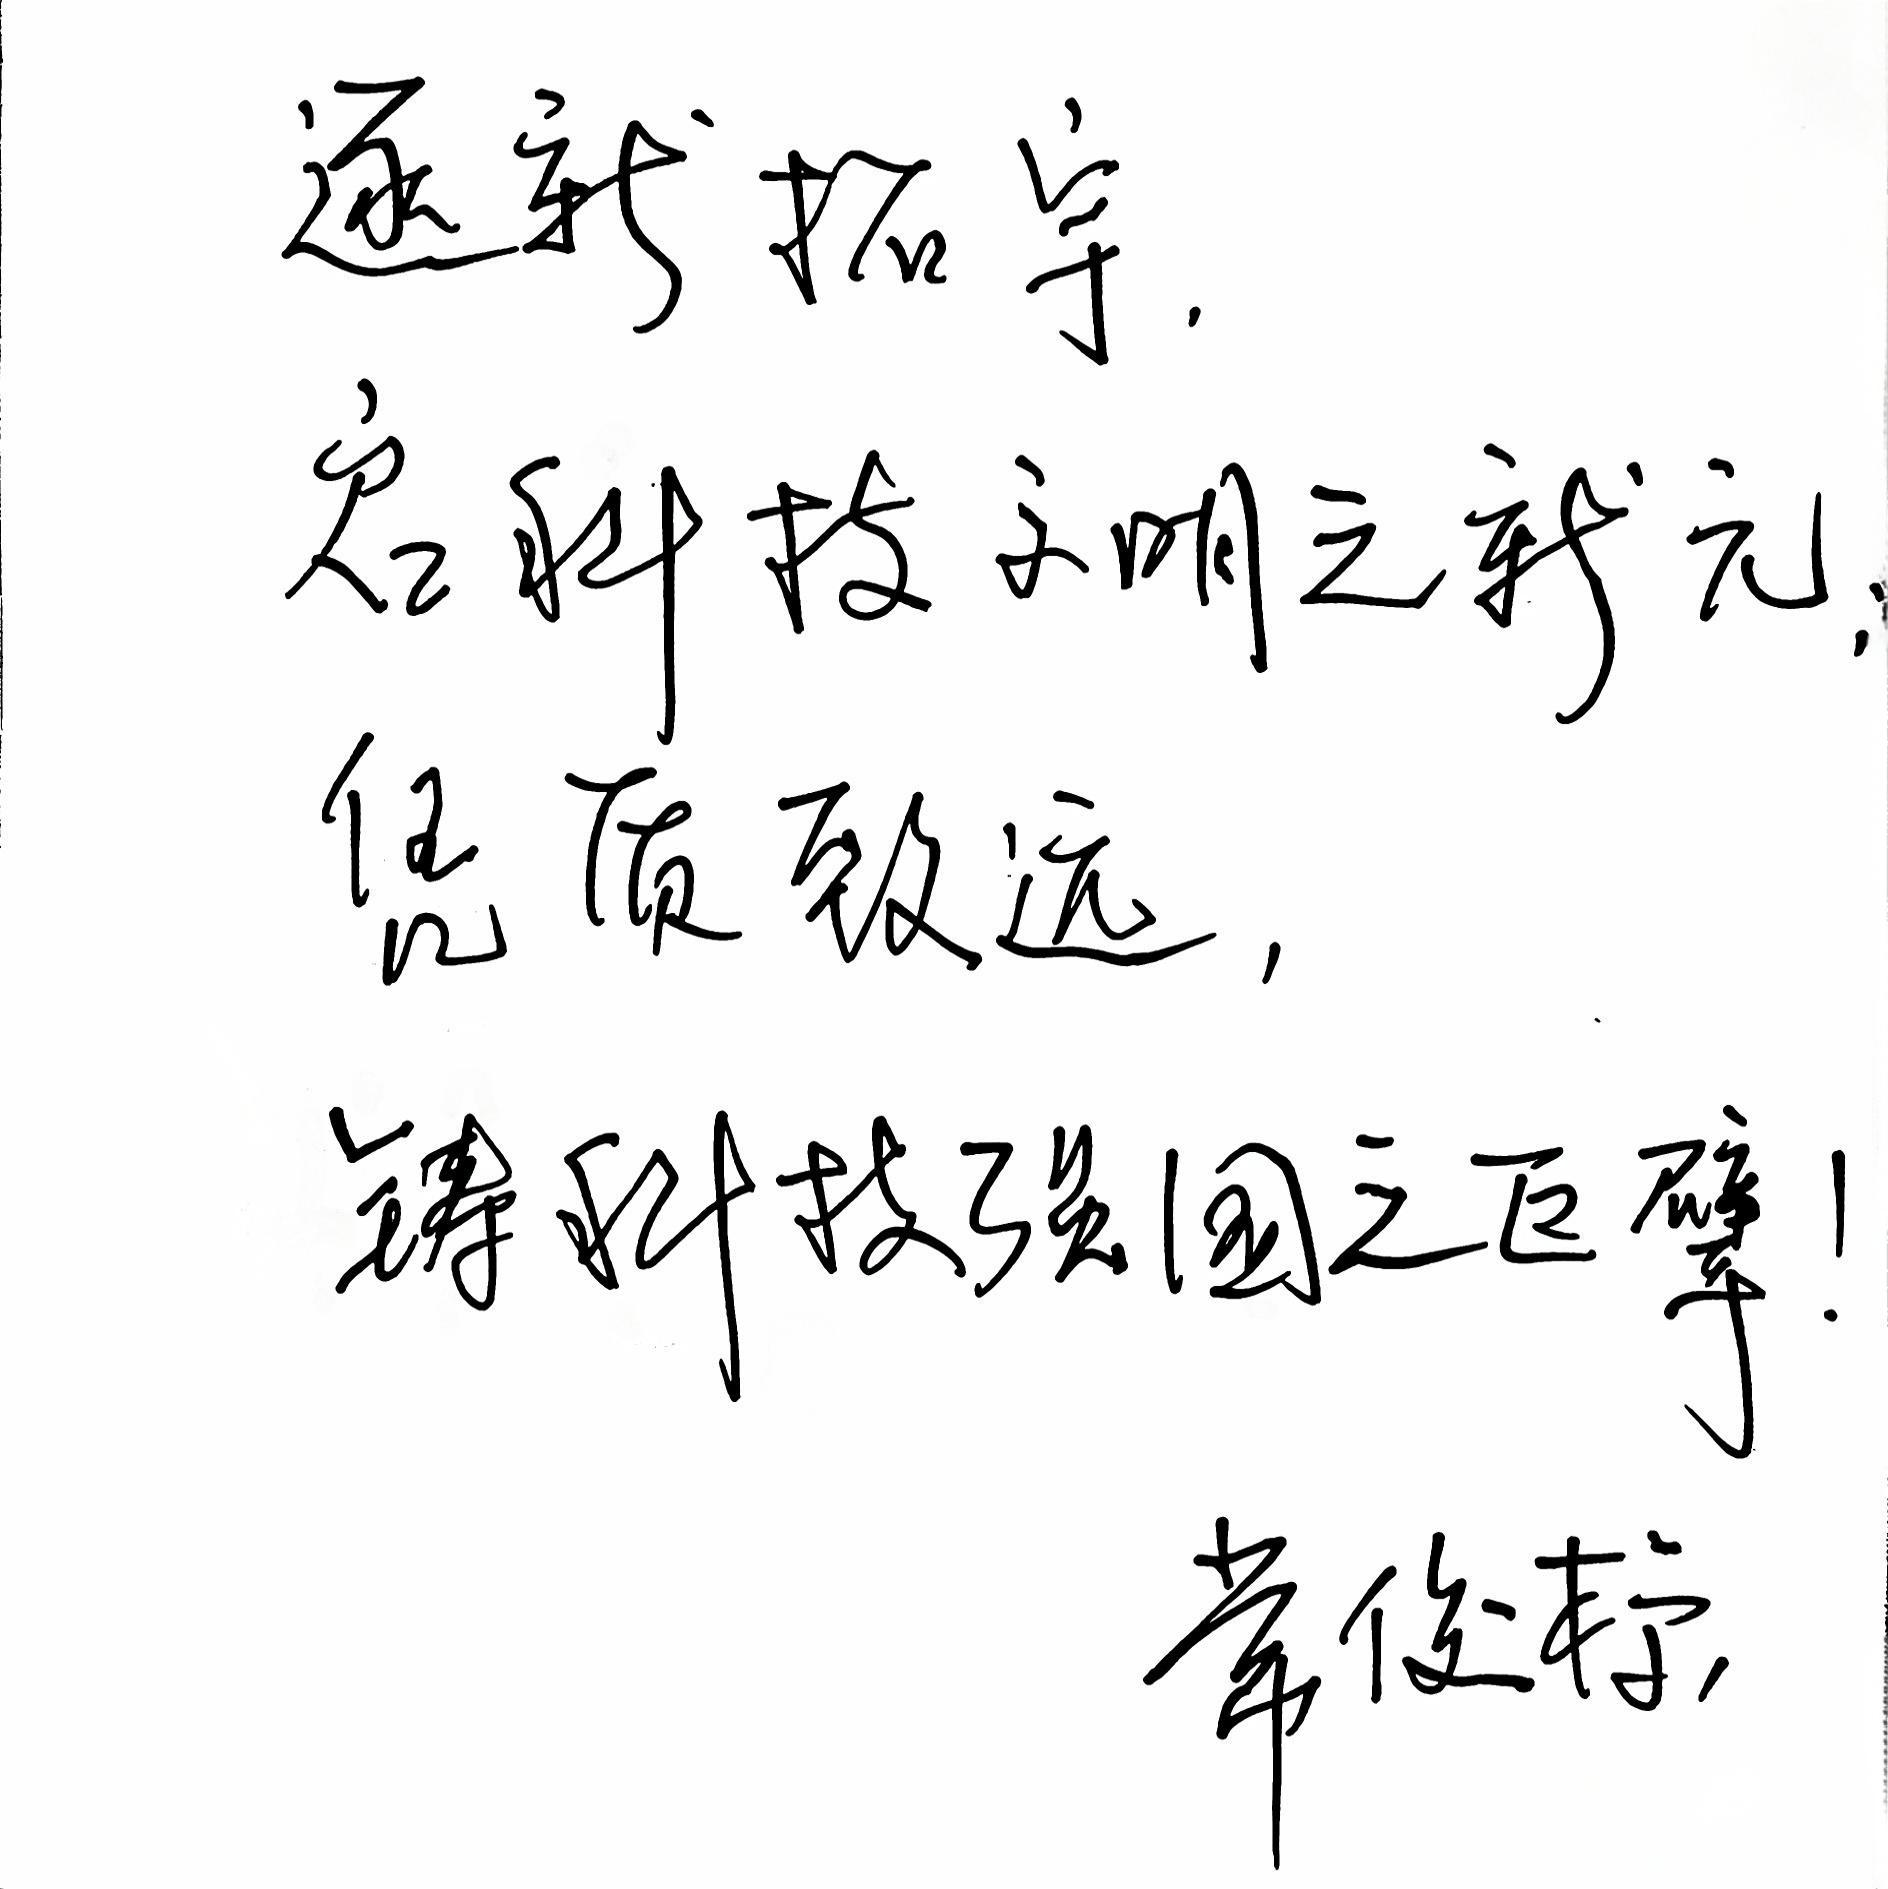 逐新拓宇,
启科技文明之新元;
凭质致远,
铸科技强国之巨擘!
常俊标